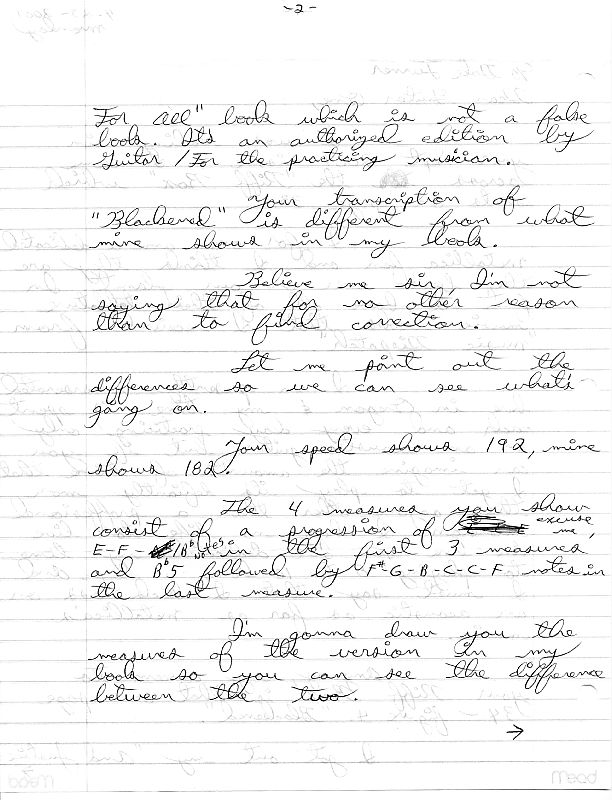 -2-
For All" book which is not a false
book. Its an authorized edition by
Guitar / For the practicing musician.
Your transcription of
"Blackened" is different from what
mine shows in my book.
Believe me sir, I'm not
saying that for no other reason
than to find correction.
Let me point out the
differences so we can see what's
going on.
Your speed shows 192, mine
shows 182.
The 4 measures you show
consist of a progression of excuse me,
E-F- /Bb notes in the first 3 measures
and Bb5 followed by F#-G-B-C-C-F notes in
the last measure.
I'm gonna draw you the
measures of the version in my
book so you can see the difference
between the two.
→
mead